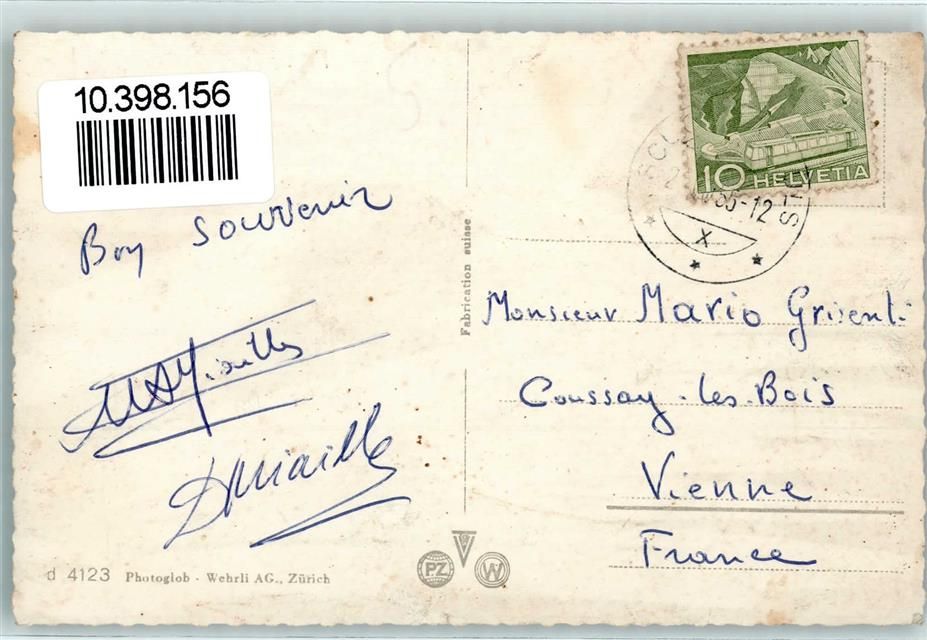 10.398.156
Bon Souvenir
d 4123 Photoglob - Wehrli AG., Zürich
Fabrication suisse
PZ
W
10 HELVETIA
-12
X
Monsieur Mario
Coussay-les-Bois
Vienne
France